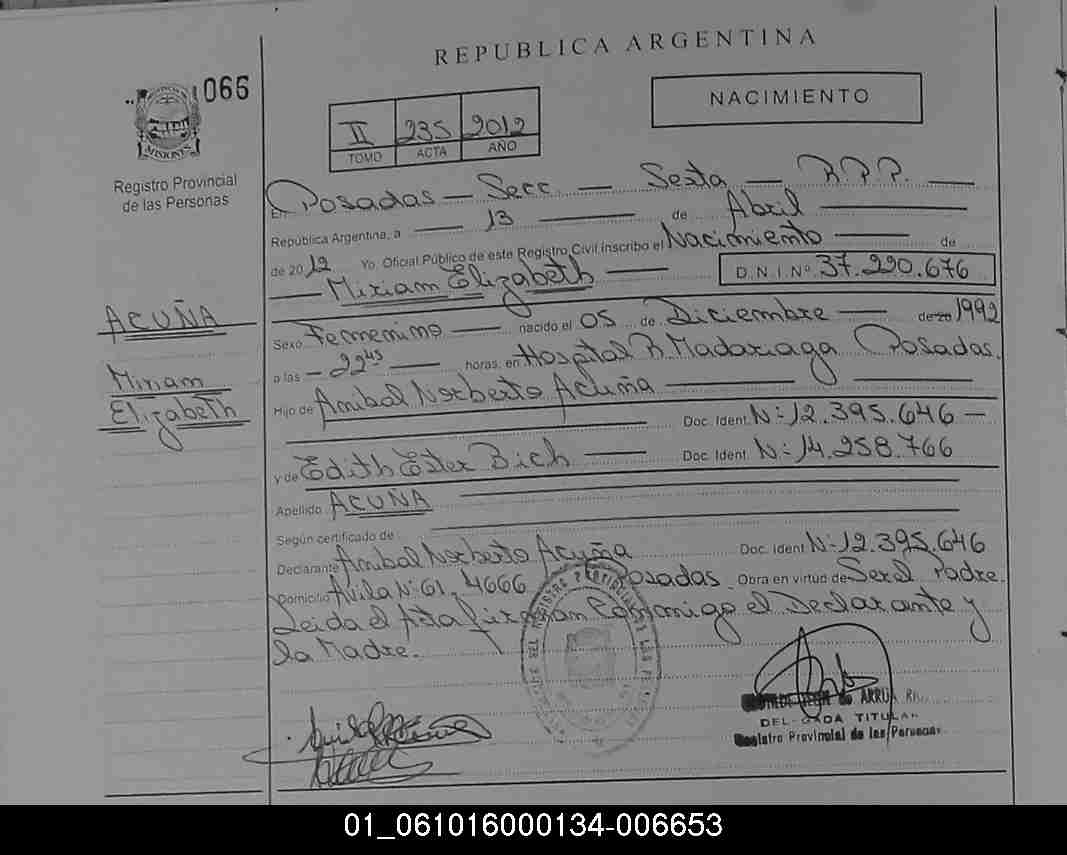 REPUBLICA ARGENTINA
066
NACIMIENTO
II 235 2012
TOMO ACTA AÑO
MISIONES
Registro Provincial
de las Personas
En Posadas — Secc. — Sexta — R.P.P. —
República Argentina, a — 13 — de Abril —
de 2012 Yo Oficial Público de este Registro Civil inscribo el Nacimiento — de
— Miriam Elizabeth — D.N.I.Nº 37.290.676
ACUÑA
Miriam
Elizabeth
Sexo Femenino — nacido el 05 de Diciembre — de 20 1992
a las — 22 45 — horas, en Hospital R. Madariaga Posadas.
Hijo de Anibal Norberto Acuña —
Doc. Ident. N: 12.395.646 —
y de Edith Ester Bich — Doc. Ident. N: 14.258.766
Apellido ACUÑA
Según certificado de
Declarante Anibal Norberto Acuña Doc. Ident. N: 12.395.646
Domicilio Avila Nº 61, 4666 Posadas Obra en virtud de Ser el Padre.
Leida el Acta firman Conmigo el Declarante y
la Madre.
de ARRUA
DELEGADA TITULAR
Registro Provincial de las Personas
01_061016000134-006653